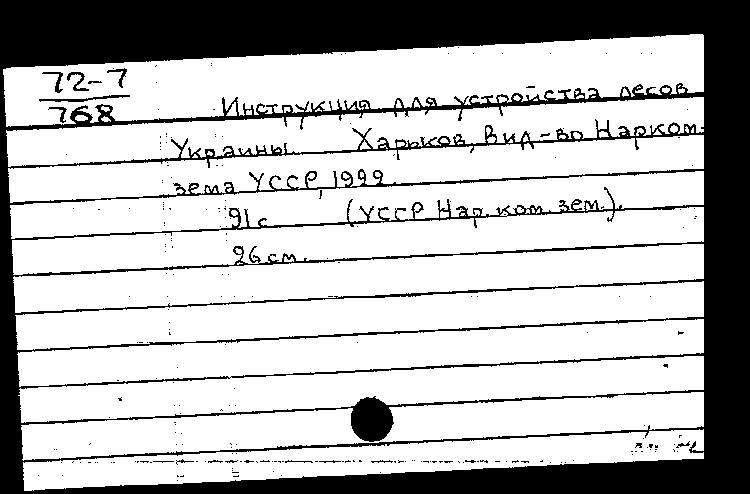 72-7
768
Инструкция для устройства лесов
Украины. Харьков, Вид-во Нарком-
зема УССР, 1922.
91 с (УССР Нар. ком. зем.).
26 см.